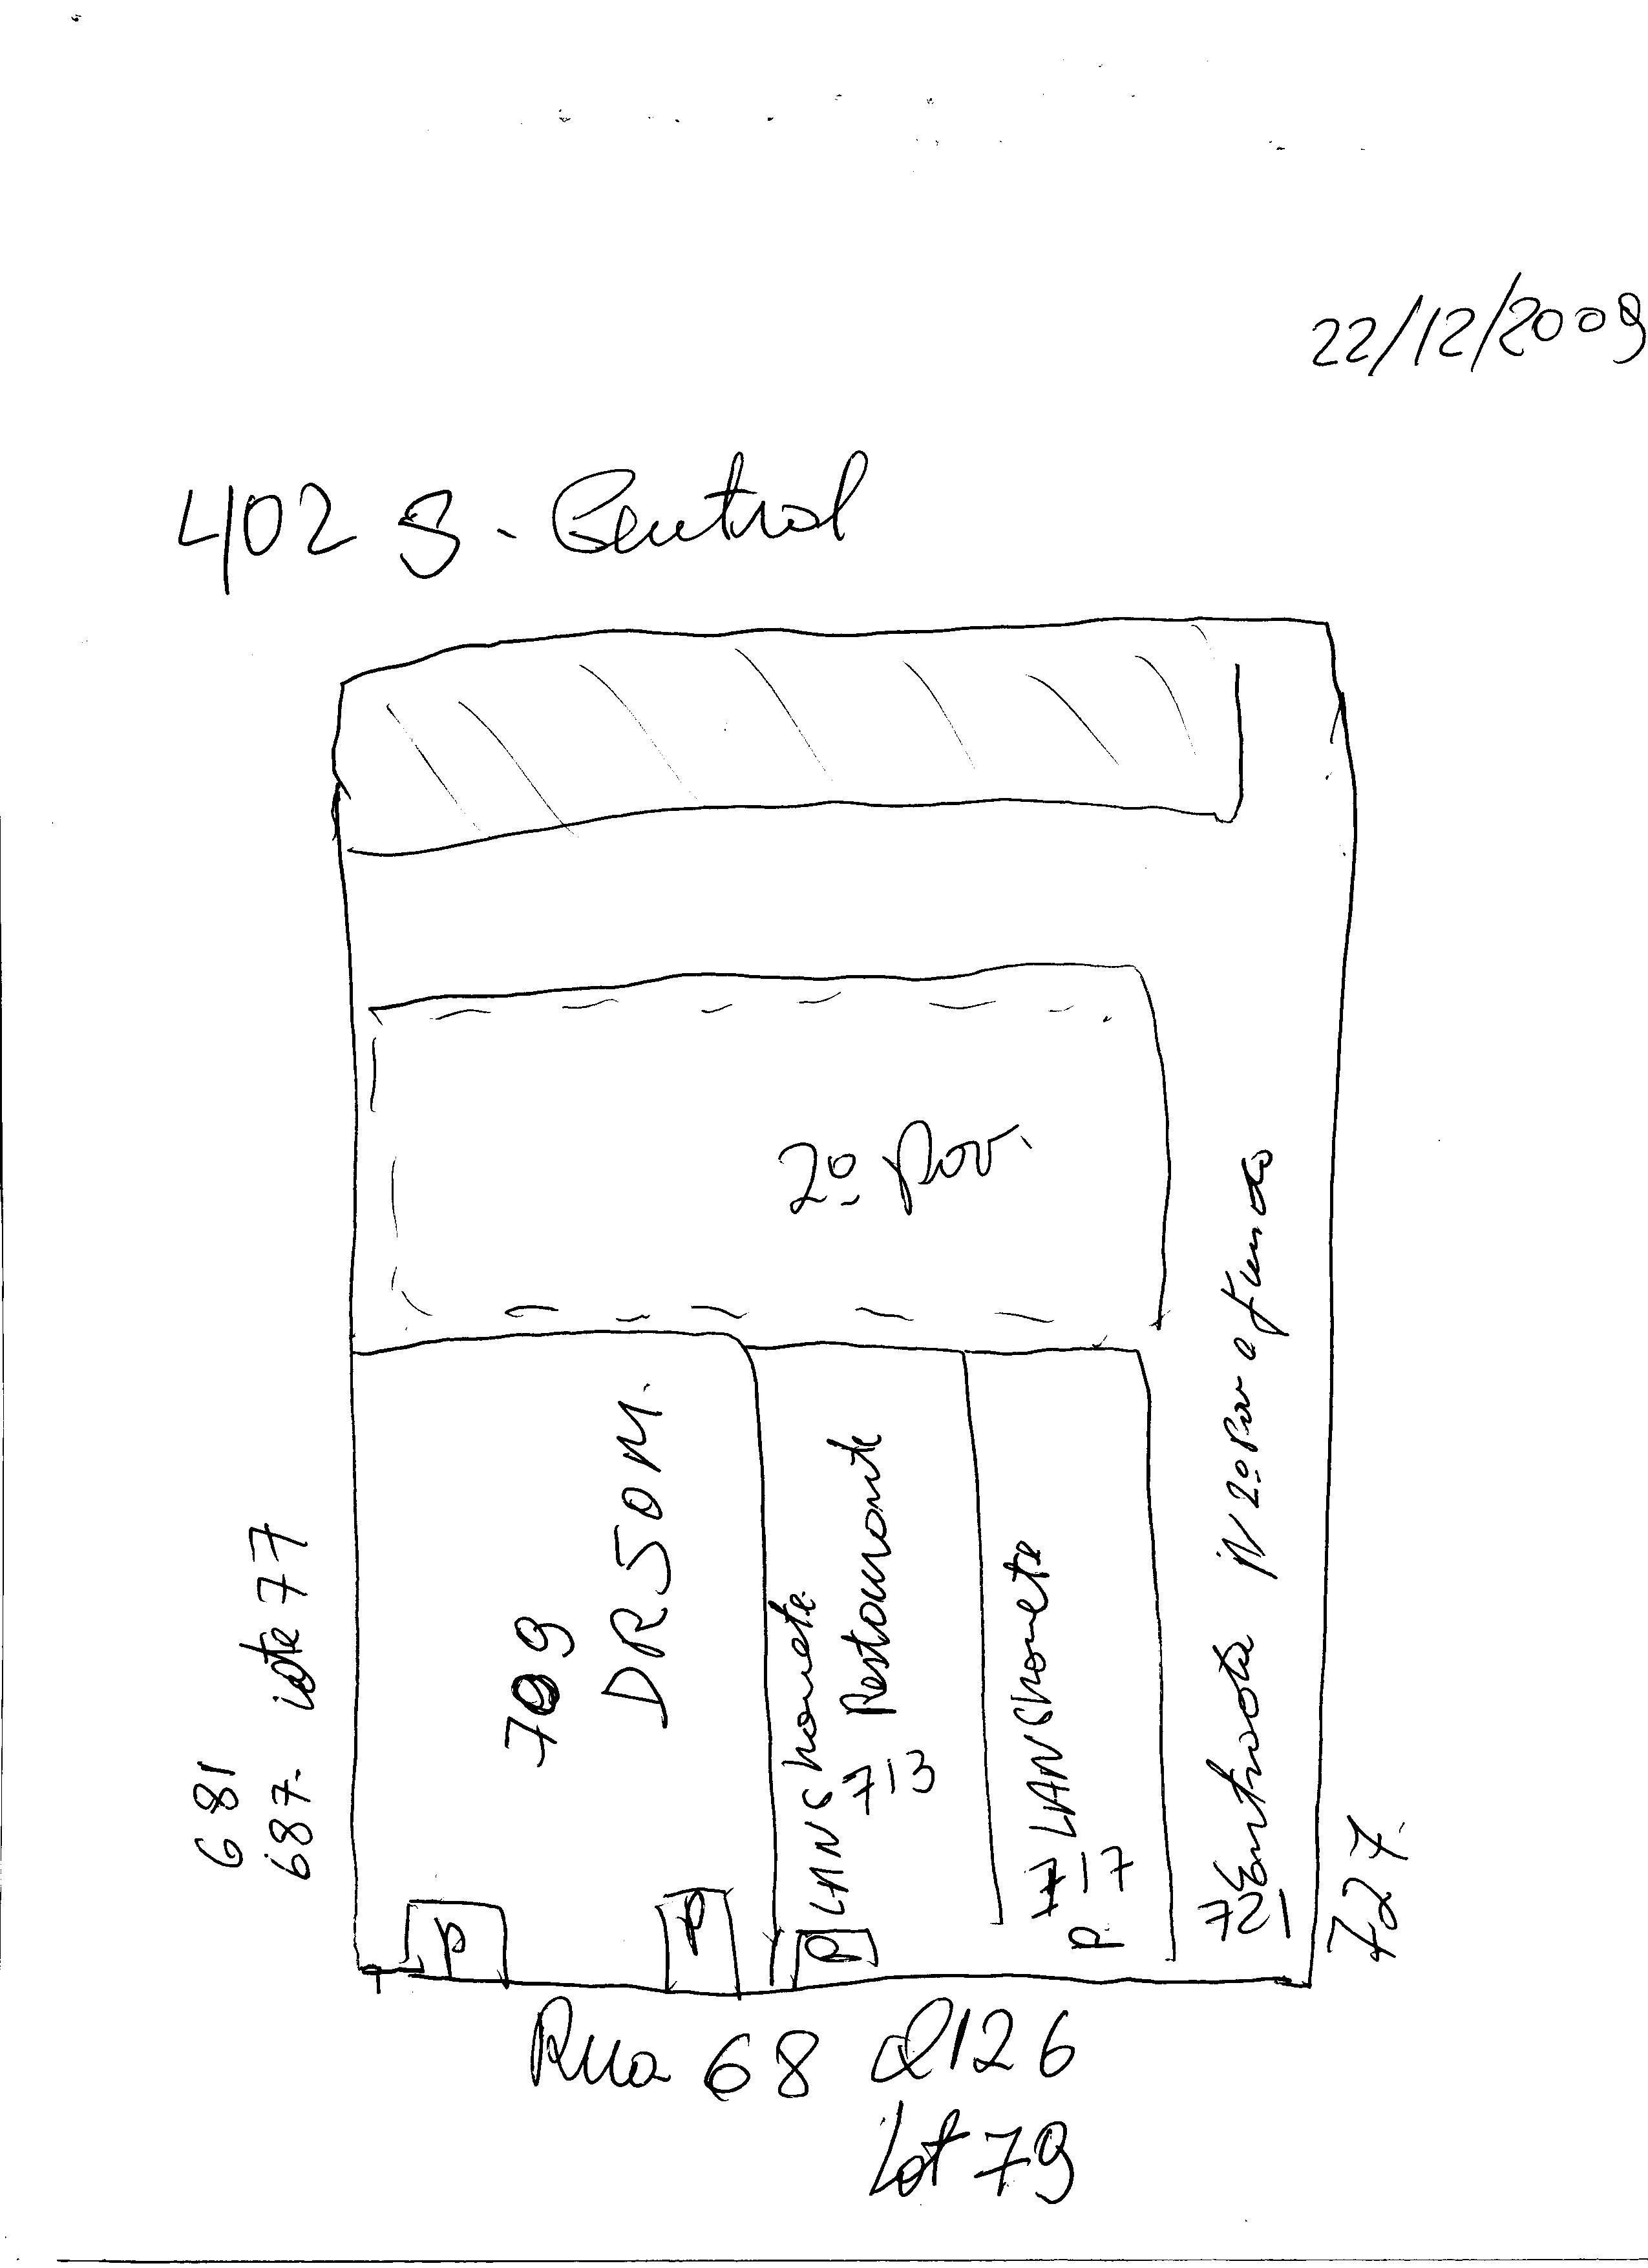 22/12/2009
402 S. Central
2º Pav.
681
687. lote 77
709
DR SOM.
P
P
P
LANShonete
Restaurante
713
LANShonete
717
P
Entrada p/ 2º Pav e fundo
721
727.
Rua 68 Q126
Lot 79